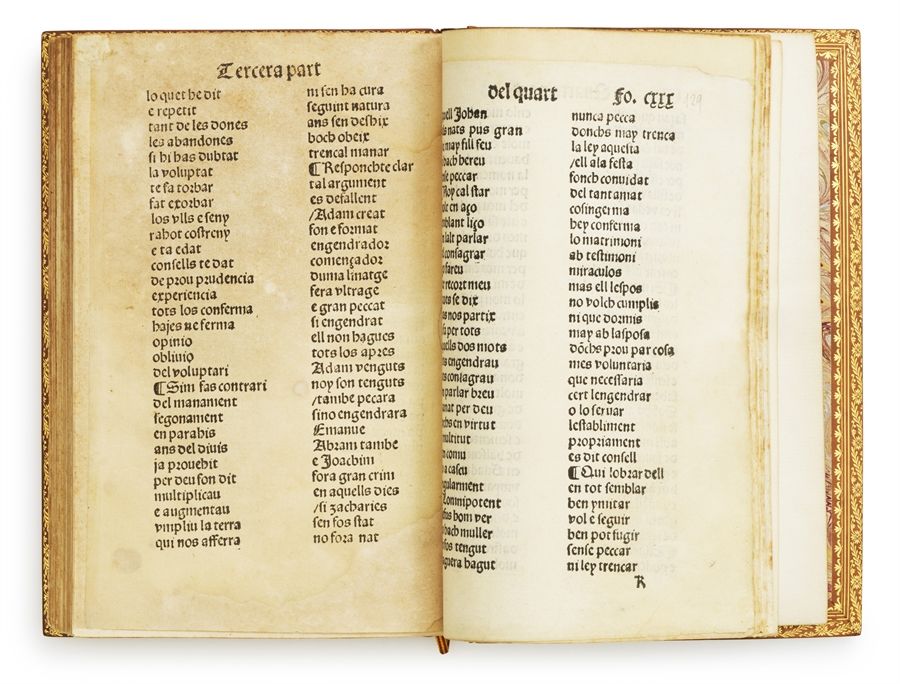 Tercera part
lo que the dit
e repetit
tant de les dones
les abandones
si hi has dubtat
la voluptat
te fa torbar
fat exorbar
los vlls e seny
rahot costreny
e ta edat
consells te dat
de prou prudencia
experiencia
tots los conferma
hajes ne ferma
opinio
obliuio
del voluptari
¶ Sim fas contrari
del manament
segonament
en parahis
ans del diuis
ja prouehit
per deu fon dit
multiplicau
e augmentau
vmpliu la terra
qui nos afferra
ni sen ha cura
seguint natura
ans sen desbix
hoch obeix
trencal manar
¶ Responchte clar
tal argument
es defallent
/Adam creat
fon e format
engendrador
començador
duma linatge
fera vltrage
e gran peccat
si engendrat
ell non hagues
tots los apres
Adam venguts
noy son tenguts
/tambe pecara
sino engendrara
Emanue
Abram tambe
e Joachim
fora gran crim
en aquells dies
/si zacharies
sen fos stat
no fora nat
del quart
fo. cxxx
129
Johan
nats pus gran
may fill feu
hereu
peccar
cal star
en aço
liço
parlar
consagrar
fareu
recort meu
se dix
nos partix
per tots
dos mots
engendrau
consagrau
parlar breu
per deu
en virtut
comu
bom ver
muller
tengut
hagut
nunca pecca
donchs may trenca
la ley aquesta
/ell ala festa
fonch conuidat
del tant aniat
cosin germa
hey conferma
lo matrimoni
ab testimoni
miraculos
mas ell lespos
no volch cumplis
ni que dormis
may ab lasposa
dõchs prou par cosa
mes voluntaria
que necessaria
cert lengendrar
o lo seruar
lestabliment
propriament
es dit consell
¶ Qui lobrar dell
en tot semblar
ben ymitar
vol e seguir
ben pot fugir
sense peccar
ni ley trencar
R